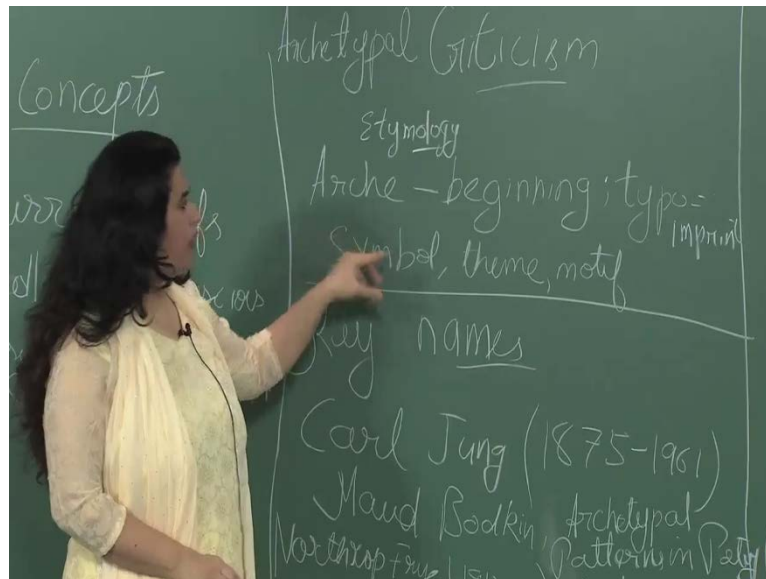 Concepts
Archetypal Criticism
Etymology
Arche – beginning; typo =
imprint
Symbol, theme, motif
Key names
Carl Jung (1875-1961)
Maud Bodkin, Archetypal
Patterns in
Northrop Frye